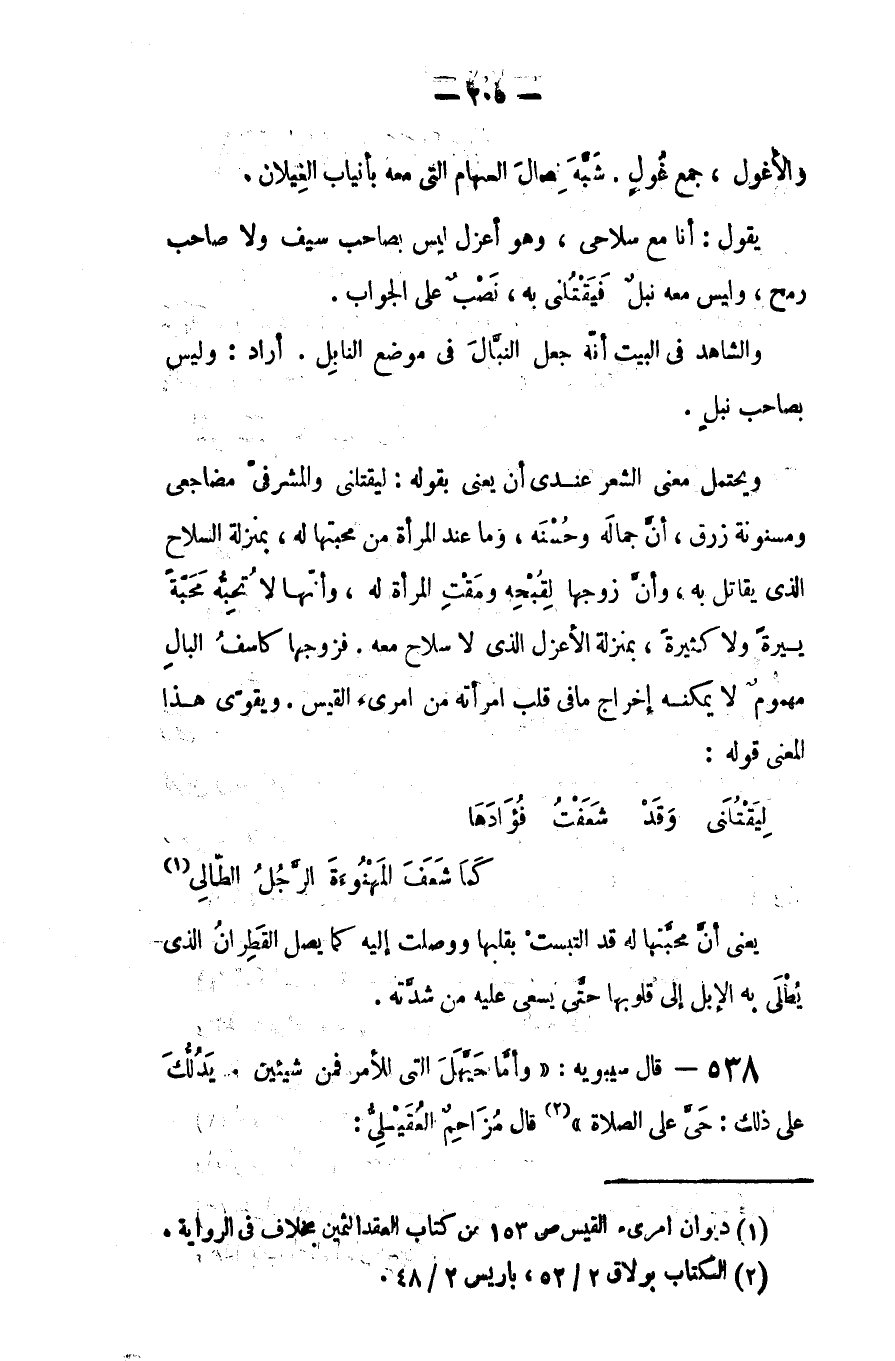 — ٢٠٥ —
والأغول ، جمع غُولٍ . شَبَّهَ نِصالَ السهام التى معه بأنياب الغِيلان .
يقول : أنا مع سلاحى ، وهو أعزل ليس بصاحب سيف ولا صاحب
رمح ، وليس معه نبلٌ فَيَقْتُلنى به ، نَصْبٌ على الجواب .
والشاهد فى البيت أنّه جعل النبَّالَ فى موضع النابِل . أراد : وليس
بصاحب نبلٍ .
ويحتمل معنى الشعر عنـدى أن يعنى بقوله : ليقتلنى والمشرفىّ مضاجعى
ومسنونة زرق ، أنَّ جمالَه وحُسْنَه ، وما عند المرأة من محبتها له ، بمنزلة السلاح
الذى يقاتل به ، وأنَّ زوجها لِقُبْحِه ومَقْتِ المرأة له ، وأنّهـا لا تُحِبُّه مَحَبّةً
يسيرةً ولا كثيرةً ، بمنزلة الأعزل الذى لا سلاح معه . فزوجها كاسفُ البالِ
مهمومٌ لا يمكنـه إخراج مافى قلب امرأته من امرىء القيس . ويقوّى هـذا
المعنى قوله :
لِيَقْتُلَنى وَقَدْ شَعَفْتُ فُؤَادَهَا
كَمَا شَعَفَ المَهْنُوءَةَ الرَّجُلُ الطَّالِى(١)
يعنى أنَّ محبَّتها له قد التبستْ بقلبها ووصلت إليه كما يصل القَطِرانُ الذى
يُطْلَى به الإبل إلى قلوبها حتَّى يسعى عليه من شدَّته .
٥٣٨ — قال سيبويه : « وأمَّا حَيَّهَلَ التى للأمر فمن شيئين . يَدُلُّكَ
على ذلك : حَىَّ على الصلاة »(٢) قال مُزَاحِمٌ العُقَيْـلِىُّ :
(١) ديوان امرىء القيس ص ١٥٣ من كتاب العقد الثمين بخلاف فى الرواية .
(٢) الكتاب بولاق ٢ / ٥٢ ، باريس ٢ / ٤٨ .